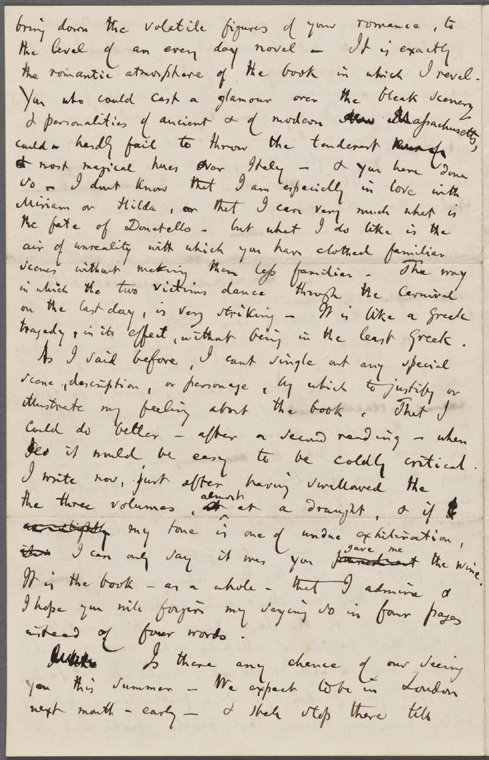 bring down the volatile figures of your romance, to
the level of an every day novel – It is exactly
the romantic atmosphere of the book in which I revel.
You who could cast a glamour over the bleak scenery
& personalities of ancient & of modern Massachusetts,
could hardly fail to throw the tenderest
& most magical hues over Italy – & you have done
so – I dont know that I am especially in love with
Miriam or Hilda, or that I care very much what is
the fate of Donatello – but what I do like is the
air of unreality with which you have clothed familiar
scenes without making them less familiar – The way
in which the two victims dance through the Carnival
on the last day, is very striking – It is like a Greek
tragedy, in its effect, without being in the least Greek.
As I said before, I cant single out any special
scene, description, or personage, by which to justify or
illustrate my feeling about the book. That I
could do better – after a second reading – when
it would be easy to be coldly critical.
I write now, just after having swallowed the
the three volumes, almost at a draught, & if
my tone is one of undue exhiliration,
I can only say it was you gave me the wine.
It is the book – as a whole – that I admire &
I hope you will forgive my saying so in four pages
instead of four words.
Is there any chance of our seeing
you this summer – We expect to be in London
next month – early – & shall stop there till